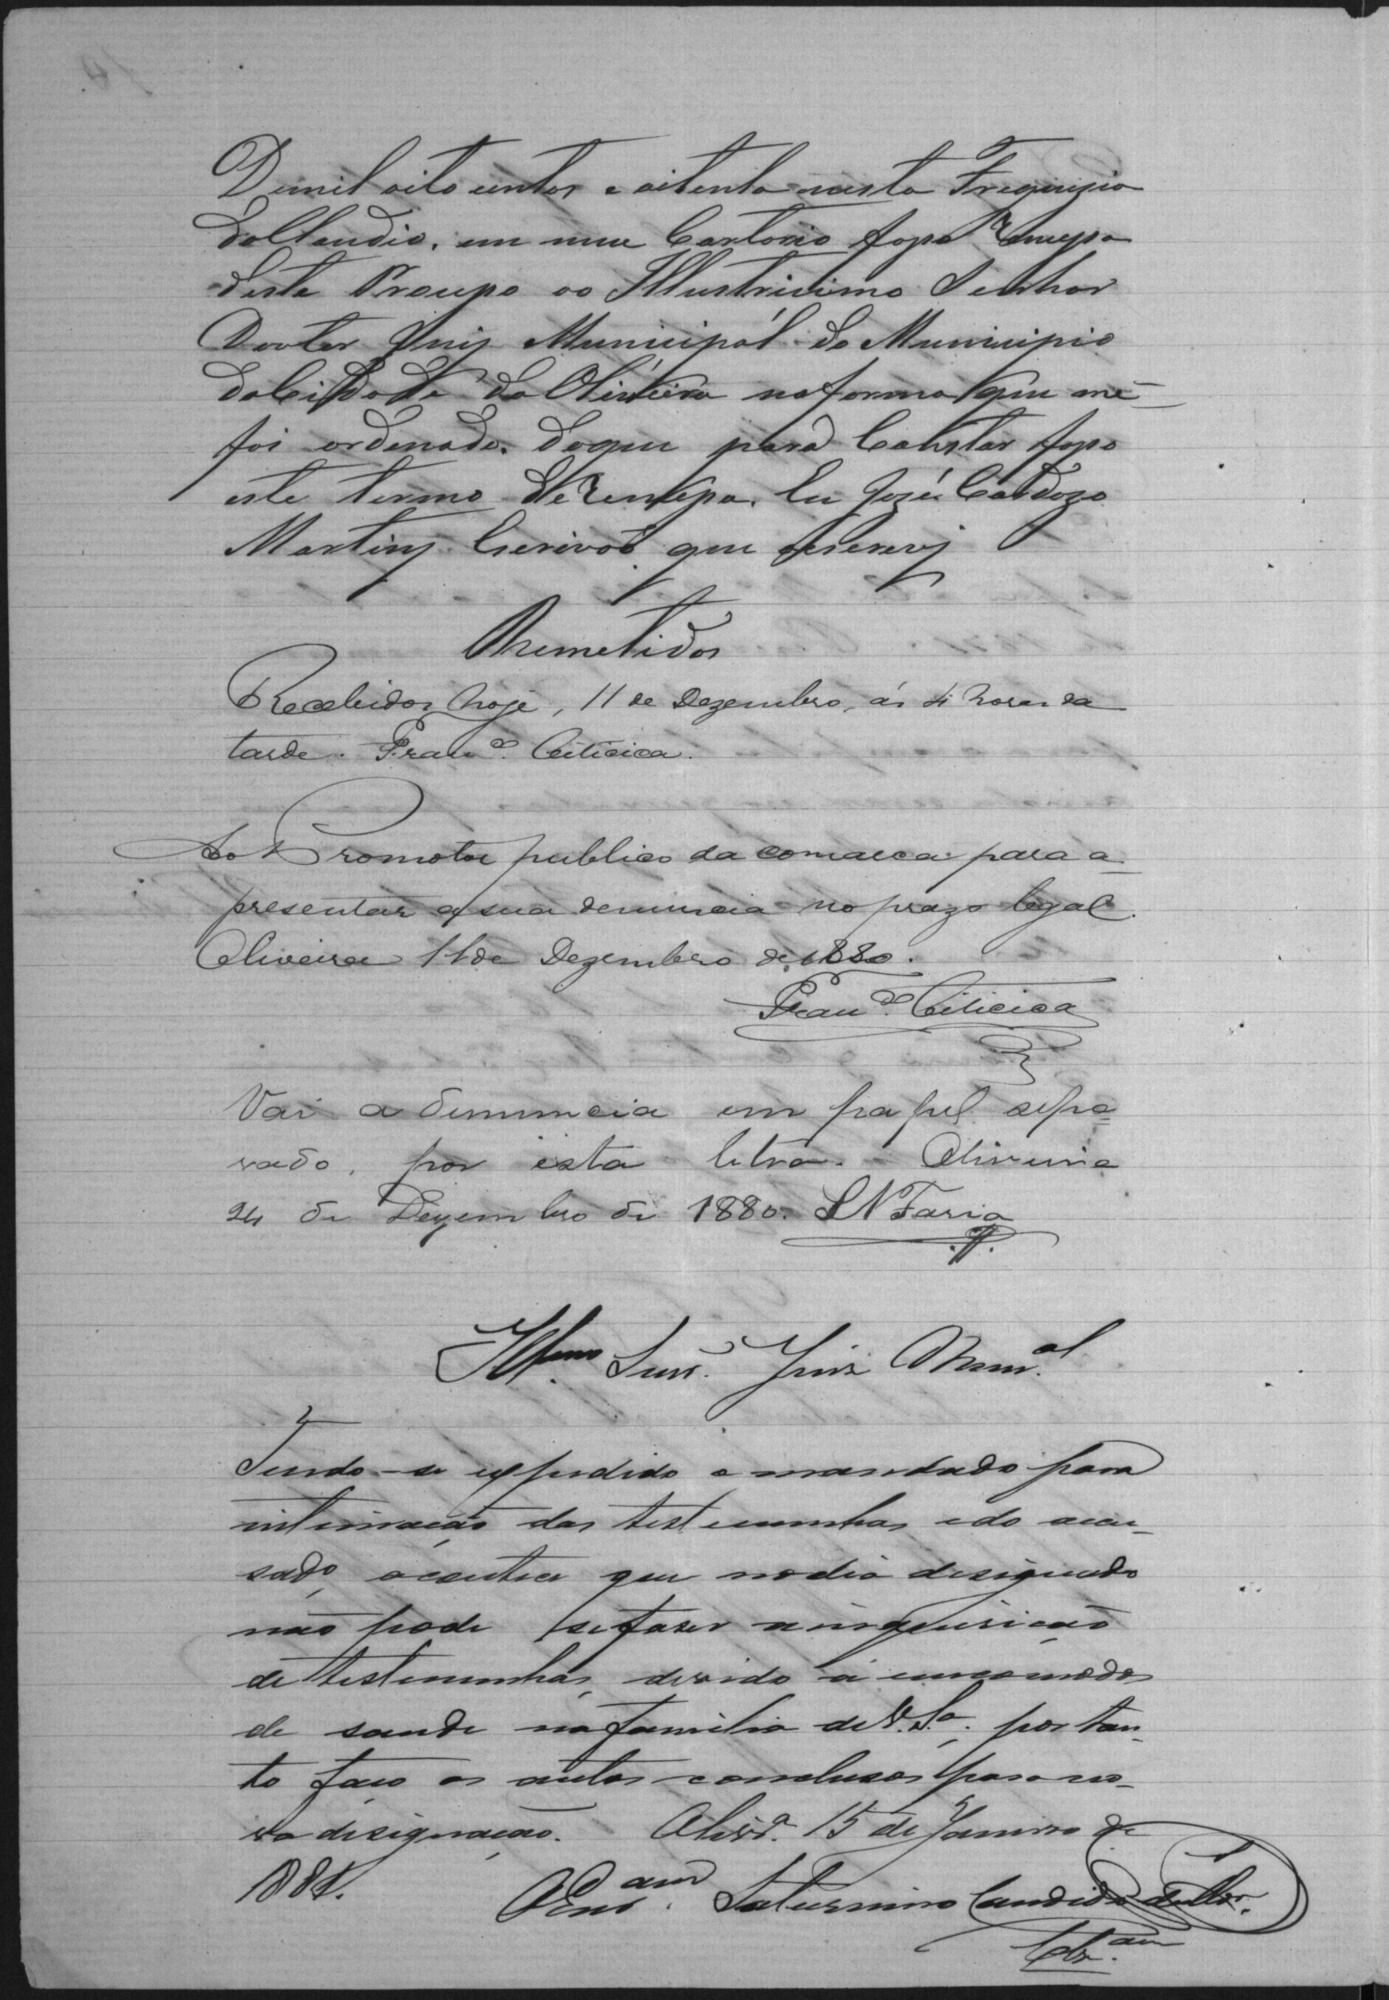 De mil oito centos e oitenta nesta Freguesia
do Claudio, em meu Cartorio faço Remeça
deste Proceço ao Illustricimo Senhor
Doutor Juiz Municipál do Municipio
da Cidade da Oliveira na forma que me
foi ordenado. do que para Constar faço
este termo de Remeça. Eu José Cardozo
Martins Escrivaõ que escrevi
Remetidos
Recebidos hoje, 11 de Dezembro, ás 4 horas da
tarde. Franco. Citicica.
Ao Promotor publico da comarca para a
presentar a sua denuncia no prazo legal.
Oliveira 11 de Dezembro de 1880.
Franco. Citicica
Vai a denuncia em papel sepa=
rado, por esta letra. Oliveira
24 de Dezembro de 1880. S N Faria
P.
Illmo Snr. Juiz Mum.al
Tendo-se expedido o mandado para
intimação das testemunhas e do accu-
sado, acontece que no dia designado
não pode se fazer a inquirição
de testemunhas, devido a incomodos
de saude na familia de V. Sa. portan-
to faço os autos conclusos para no-
va designação. Olivra. 15 de Janeiro de
1881.
O Escam. Saturnino Candido